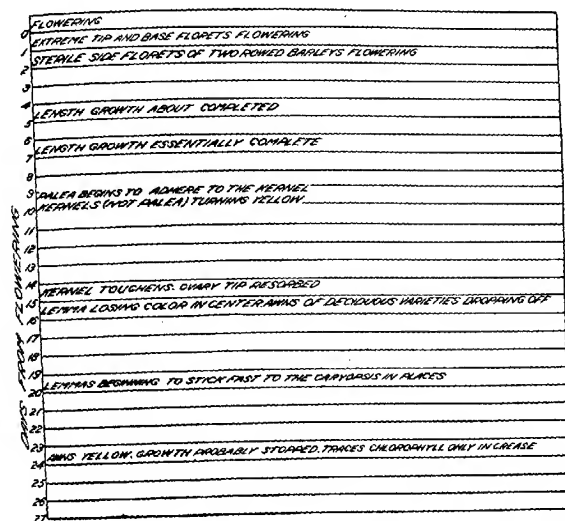 0 FLOWERING
1 EXTREME TIP AND BASE FLORETS FLOWERING
2 STERILE SIDE FLORETS OF TWO ROWED BARLEYS FLOWERING
3
4
5 LENGTH GROWTH ABOUT COMPLETED
6
7 LENGTH GROWTH ESSENTIALLY COMPLETE
8
9 PALEA BEGINS TO ADHERE TO THE KERNEL
10 KERNELS (NOT PALEA) TURNING YELLOW
11
12
13
14 KERNEL TOUGHENS. OVARY TIP RESORBED
15 LEMMA LOSING COLOR IN CENTER AWNS OF DECIDUOUS VARIETIES DROPPING OFF
16
17
18
19
20 LEMMAS BEGINNING TO STICK FAST TO THE CARYOPSIS IN PLACES
21
22
23 AWNS YELLOW. GROWTH PROBABLY STOPPED. TRACES CHLOROPHYLL ONLY IN CREASE
24
25
26
27
DAYS FROM FLOWERING